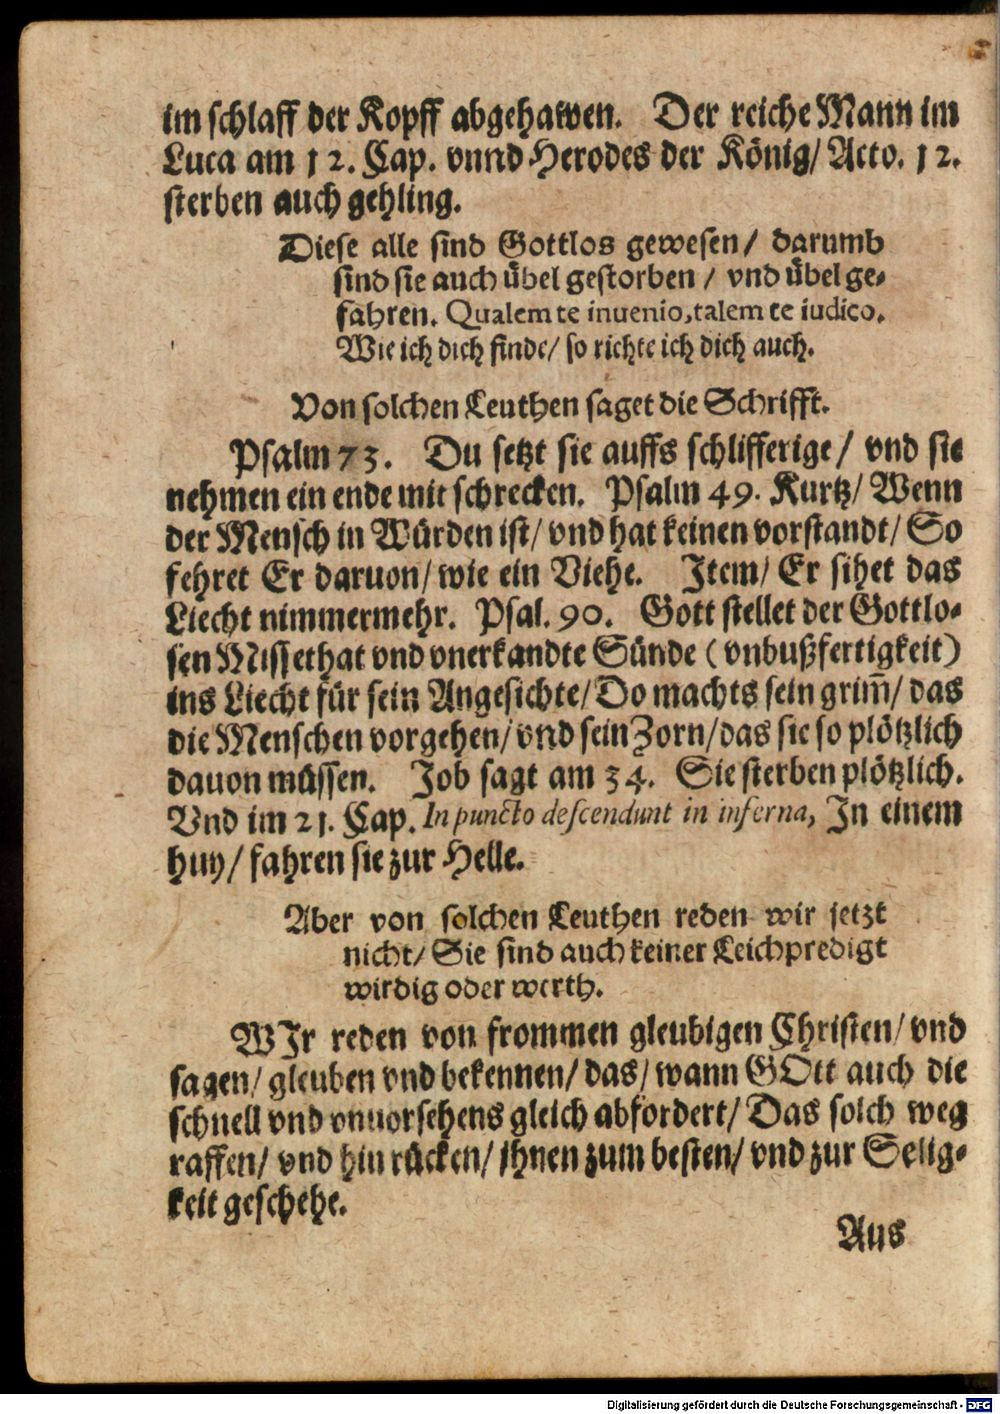 im schlaff der Kopff abgehawen. Der reiche Mann im
Luca am 12. Cap. vnnd Herodes der König/ Acto. 12.
sterben auch gehling.
Diese alle sind Gottlos gewesen/ darumb
sind sie auch übel gestorben / vnd übel ge-
fahren. Qualem te inuenio, talem te iudico.
Wie ich dich finde/ so richte ich dich auch.
Von solchen Leuthen saget die Schrifft.
Psalm 73. Du setzt sie auffs schlifferige/ vnd sie
nehmen ein ende mit schrecken. Psalm 49. Kurtz/ Wenn
der Mensch in Würden ist/ vnd hat keinen vorstandt/ So
fehret Er daruon/ wie ein Viehe. Item/ Er sihet das
Liecht nimmermehr. Psal. 90. Gott stellet der Gottlo-
sen Missethat vnd vnerkandte Sünde (vnbußfertigkeit)
ins Liecht für sein Angesichte/ Do machts sein grim̃/ das
die Menschen vorgehen/ vnd sein Zorn/ das sie so plötzlich
dauon müssen. Job sagt am 34. Sie sterben plötzlich.
Vnd im 21. Cap. In puncto descendunt in inferna, In einem
huy/ fahren sie zur Helle.
Aber von solchen Leuthen reden wir jetzt
nicht/ Sie sind auch keiner Leichpredigt
wirdig oder werth.
WIr reden von frommen gleubigen Christen/ vnd
sagen/ gleuben vnd bekennen/ das/ wann GOtt auch die
schnell vnd vnuorsehens gleich abfordert/ Das solch weg
raffen/ vnd hin rücken/ ihnen zum besten/ vnd zur Selig-
keit geschehe.
Aus
Digitalisierung gefördert durch die Deutsche Forschungsgemeinschaft - DFG